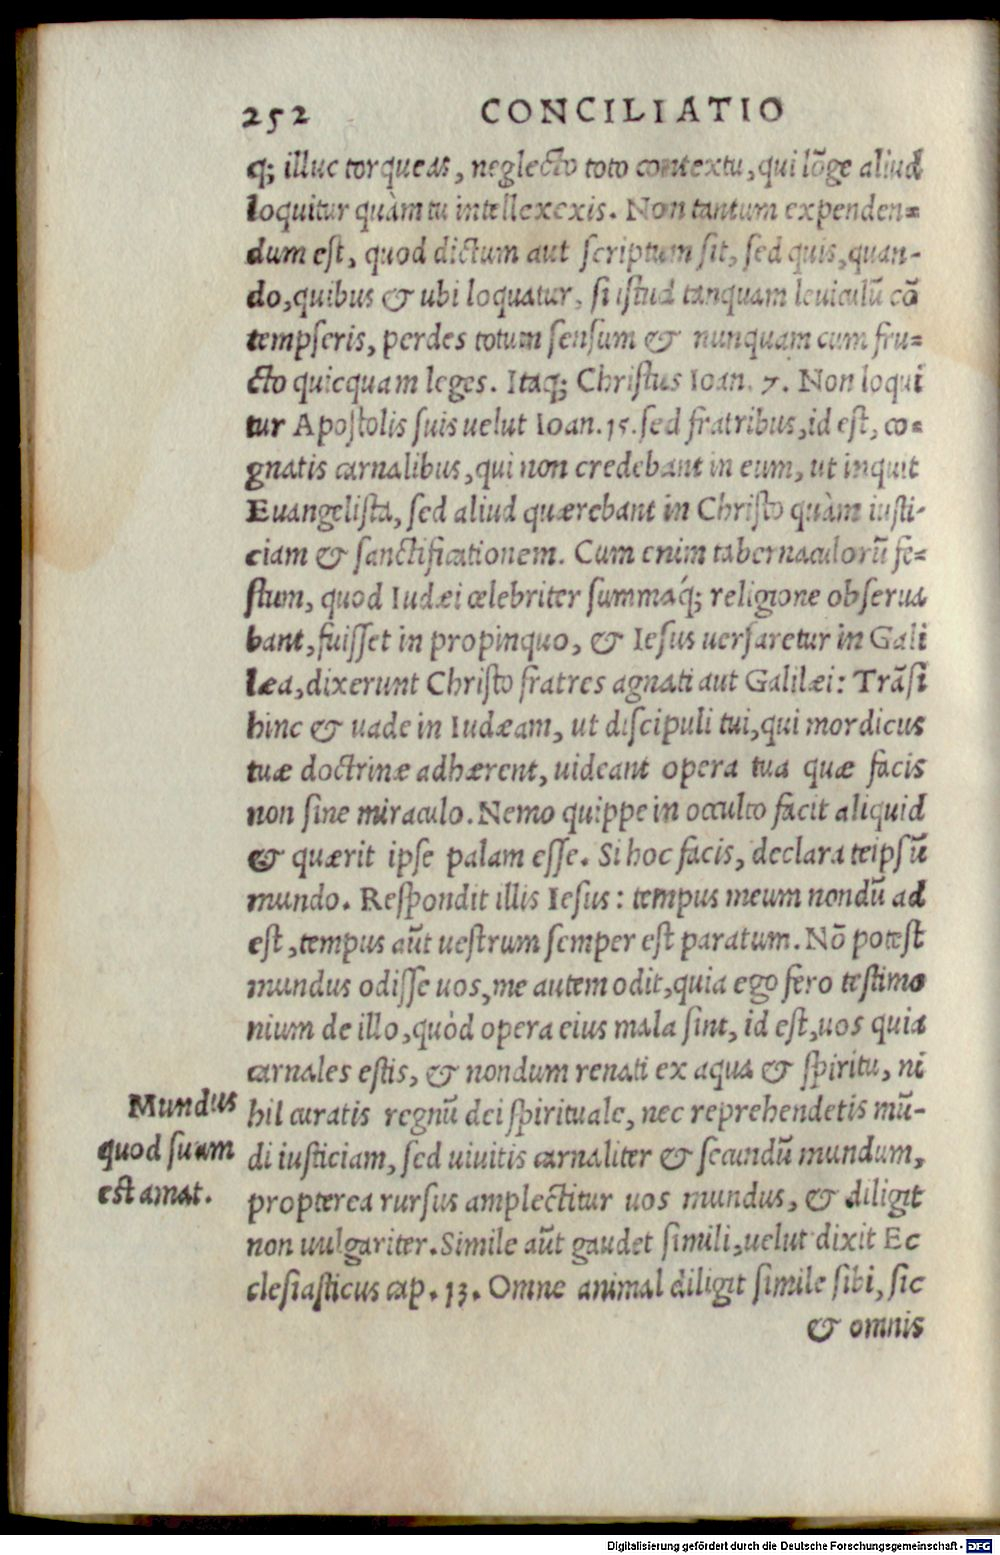 252 CONCILIATIO
q; illuc torqueas, neglecto toto contextu, qui lōge aliud
loquitur quàm tu intellexexis. Non tantum expenden=
dum est, quod dictum aut scriptum sit, sed quis, quan-
do, quibus & ubi loquatur, si istud tanquam leuiculū cō
tempseris, perdes totum sensum & nunquam cum fru=
cto quicquam leges. Itaq; Christus Ioan. 7. Non loqui
tur Apostolis suis uelut Ioan. 15. sed fratribus, id est, co=
gnatis carnalibus, qui non credebant in eum, ut inquit
Euangelista, sed aliud quærebant in Christo quàm iusti-
ciam & sanctificationem. Cum enim tabernaculorū fe=
stum, quod Iudæi celebriter summáq; religione obserua
bant, fuisset in propinquo, & Iesus uersaretur in Gali
læa, dixerunt Christo fratres agnati aut Galilæi: Trāsi
hinc & uade in Iudæam, ut discipuli tui, qui mordicus
tuæ doctrinæ adhærent, uideant opera tua quæ facis
non sine miraculo. Nemo quippe in occulto facit aliquid
& quærit ipse palam esse. Si hoc facis, declara teipsū
mundo. Respondit illis Iesus: tempus meum nondū ad
est, tempus aūt uestrum semper est paratum. Nō potest
mundus odisse uos, me autem odit, quia ego fero testimo
nium de illo, quòd opera eius mala sint, id est, uos quia
carnales estis, & nondum renati ex aqua & spiritu, ni
hil curatis regnū dei spirituale, nec reprehendetis mū-
di iusticiam, sed uiuitis carnaliter & secundū mundum,
propterea rursus amplectitur uos mundus, & diligit
non uulgariter. Simile aūt gaudet simili, uelut dixit Ec
clesiasticus cap. 13. Omne animal diligit simile sibi, sic
& omnis
Mundus
quod suum
est amat.
Digitalisierung gefördert durch die Deutsche Forschungsgemeinschaft - DFG